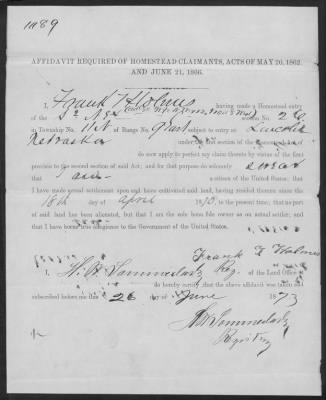 AFFIDAVIT REQUIRED OF HOMESTEAD CLAIMANTS, ACTS OF MAY 20, 1862,
AND JUNE 21, 1866.
I, Frank T Holmes having made a Homestead entry
of the section No. 26
in Township No. 11 N of Range No. 9 West subject to entry at Lincoln
Nebraska under the first section of the Homestead Act
do now apply to perfect my claim thereto by virtue of the first
proviso to the second section of said Act; and for that purpose do solemnly swear
that I am a citizen of the United States; that
I have made actual settlement upon and have cultivated said land, having resided thereon since the
18th day of April 1873, to the present time; that no part
of said land has been alienated, but that I am the sole bona fide owner as an actual settler; and
that I have borne true allegiance to the Government of the United States.
Frank T Holmes
I, Reg. of the Land Office
do hereby certify that the above affidavit was taken and
subscribed before me this 26 day of June 1873
Register